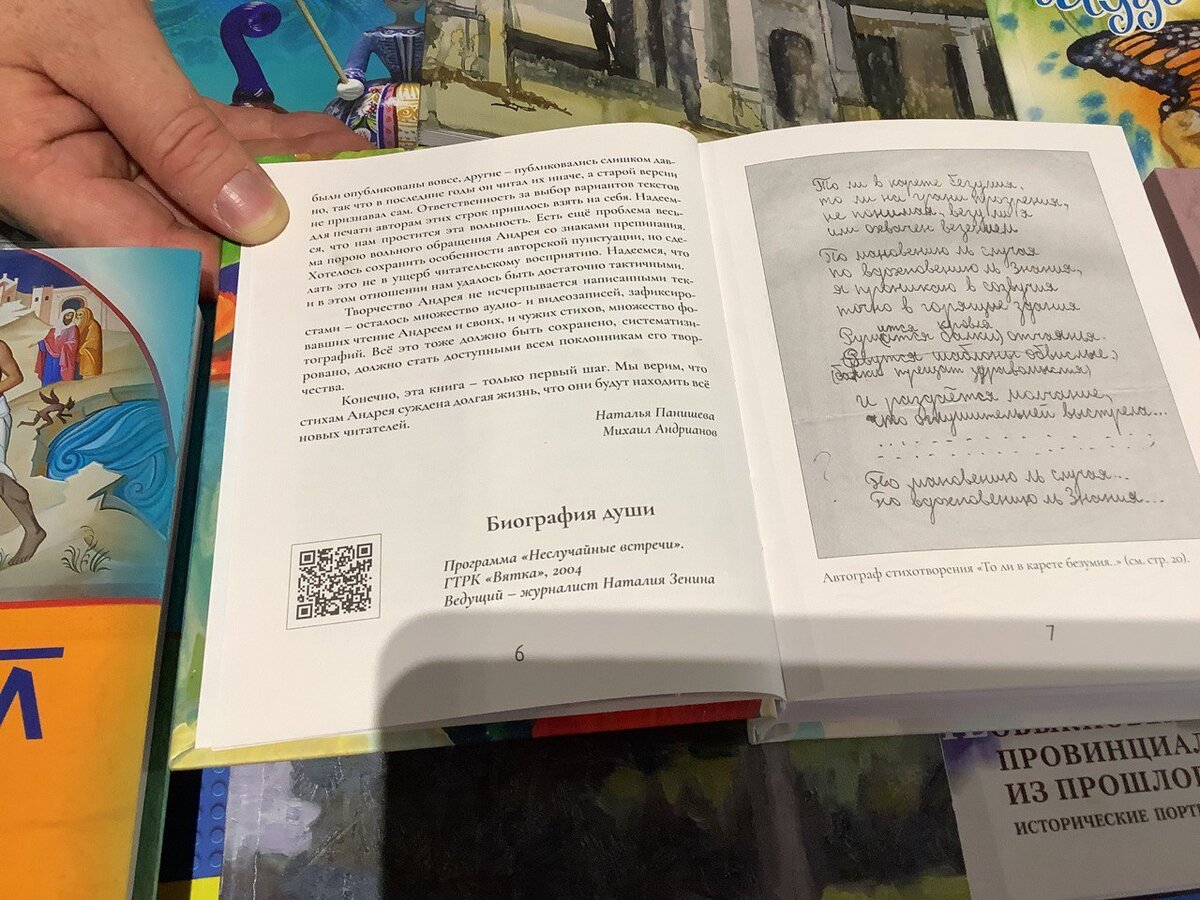 были опубликованы вовсе, другие – публиковались слишком дав-
но, так что в последние годы он читал их иначе, а старой версии
не признавал сам. Ответственность за выбор вариантов текстов
для печати авторам этих строк пришлось взять на себя. Надеем-
ся, что нам простится эта вольность. Есть ещё проблема весь-
ма порою вольного обращения Андрея со знаками препинания.
Хотелось сохранить особенности авторской пунктуации, но сде-
лать это не в ущерб читательскому восприятию. Надеемся, что
и в этом отношении нам удалось быть достаточно тактичными.
Творчество Андрея не исчерпывается написанными тек-
стами – осталось множество аудио- и видеозаписей, зафиксиро-
вавших чтение Андреем и своих, и чужих стихов, множество фо-
тографий. Всё это тоже должно быть сохранено, систематизи-
ровано, должно стать доступными всем поклонникам его твор-
чества.
Конечно, эта книга – только первый шаг. Мы верим, что
стихам Андрея суждена долгая жизнь, что они будут находить всё
новых читателей.
Наталья Панишева
Михаил Андрианов
Биография души
Программа «Неслучайные встречи».
ГТРК «Вятка», 2004
Ведущий – журналист Наталия Зенина
6
То ли в карете безумия,
то ли на грани прозрения,
не понимая, везули я
или охвачен везением
По мановению ль случая
по вдохновению ль Знания,
я проникаю в созвучия
точно в горящие здания
отчаяния.
и раздаётся молчание,
что оглушительней выстрела...
?
По мановению ль случая...
По вдохновению ль Знания...
Автограф стихотворения «То ли в карете безумия..» (см. стр. 20).
7
ПРОВИНЦИАЛ
ИЗ ПРОШЛОГ
ИСТОРИЧЕСКИЕ ПОРТР